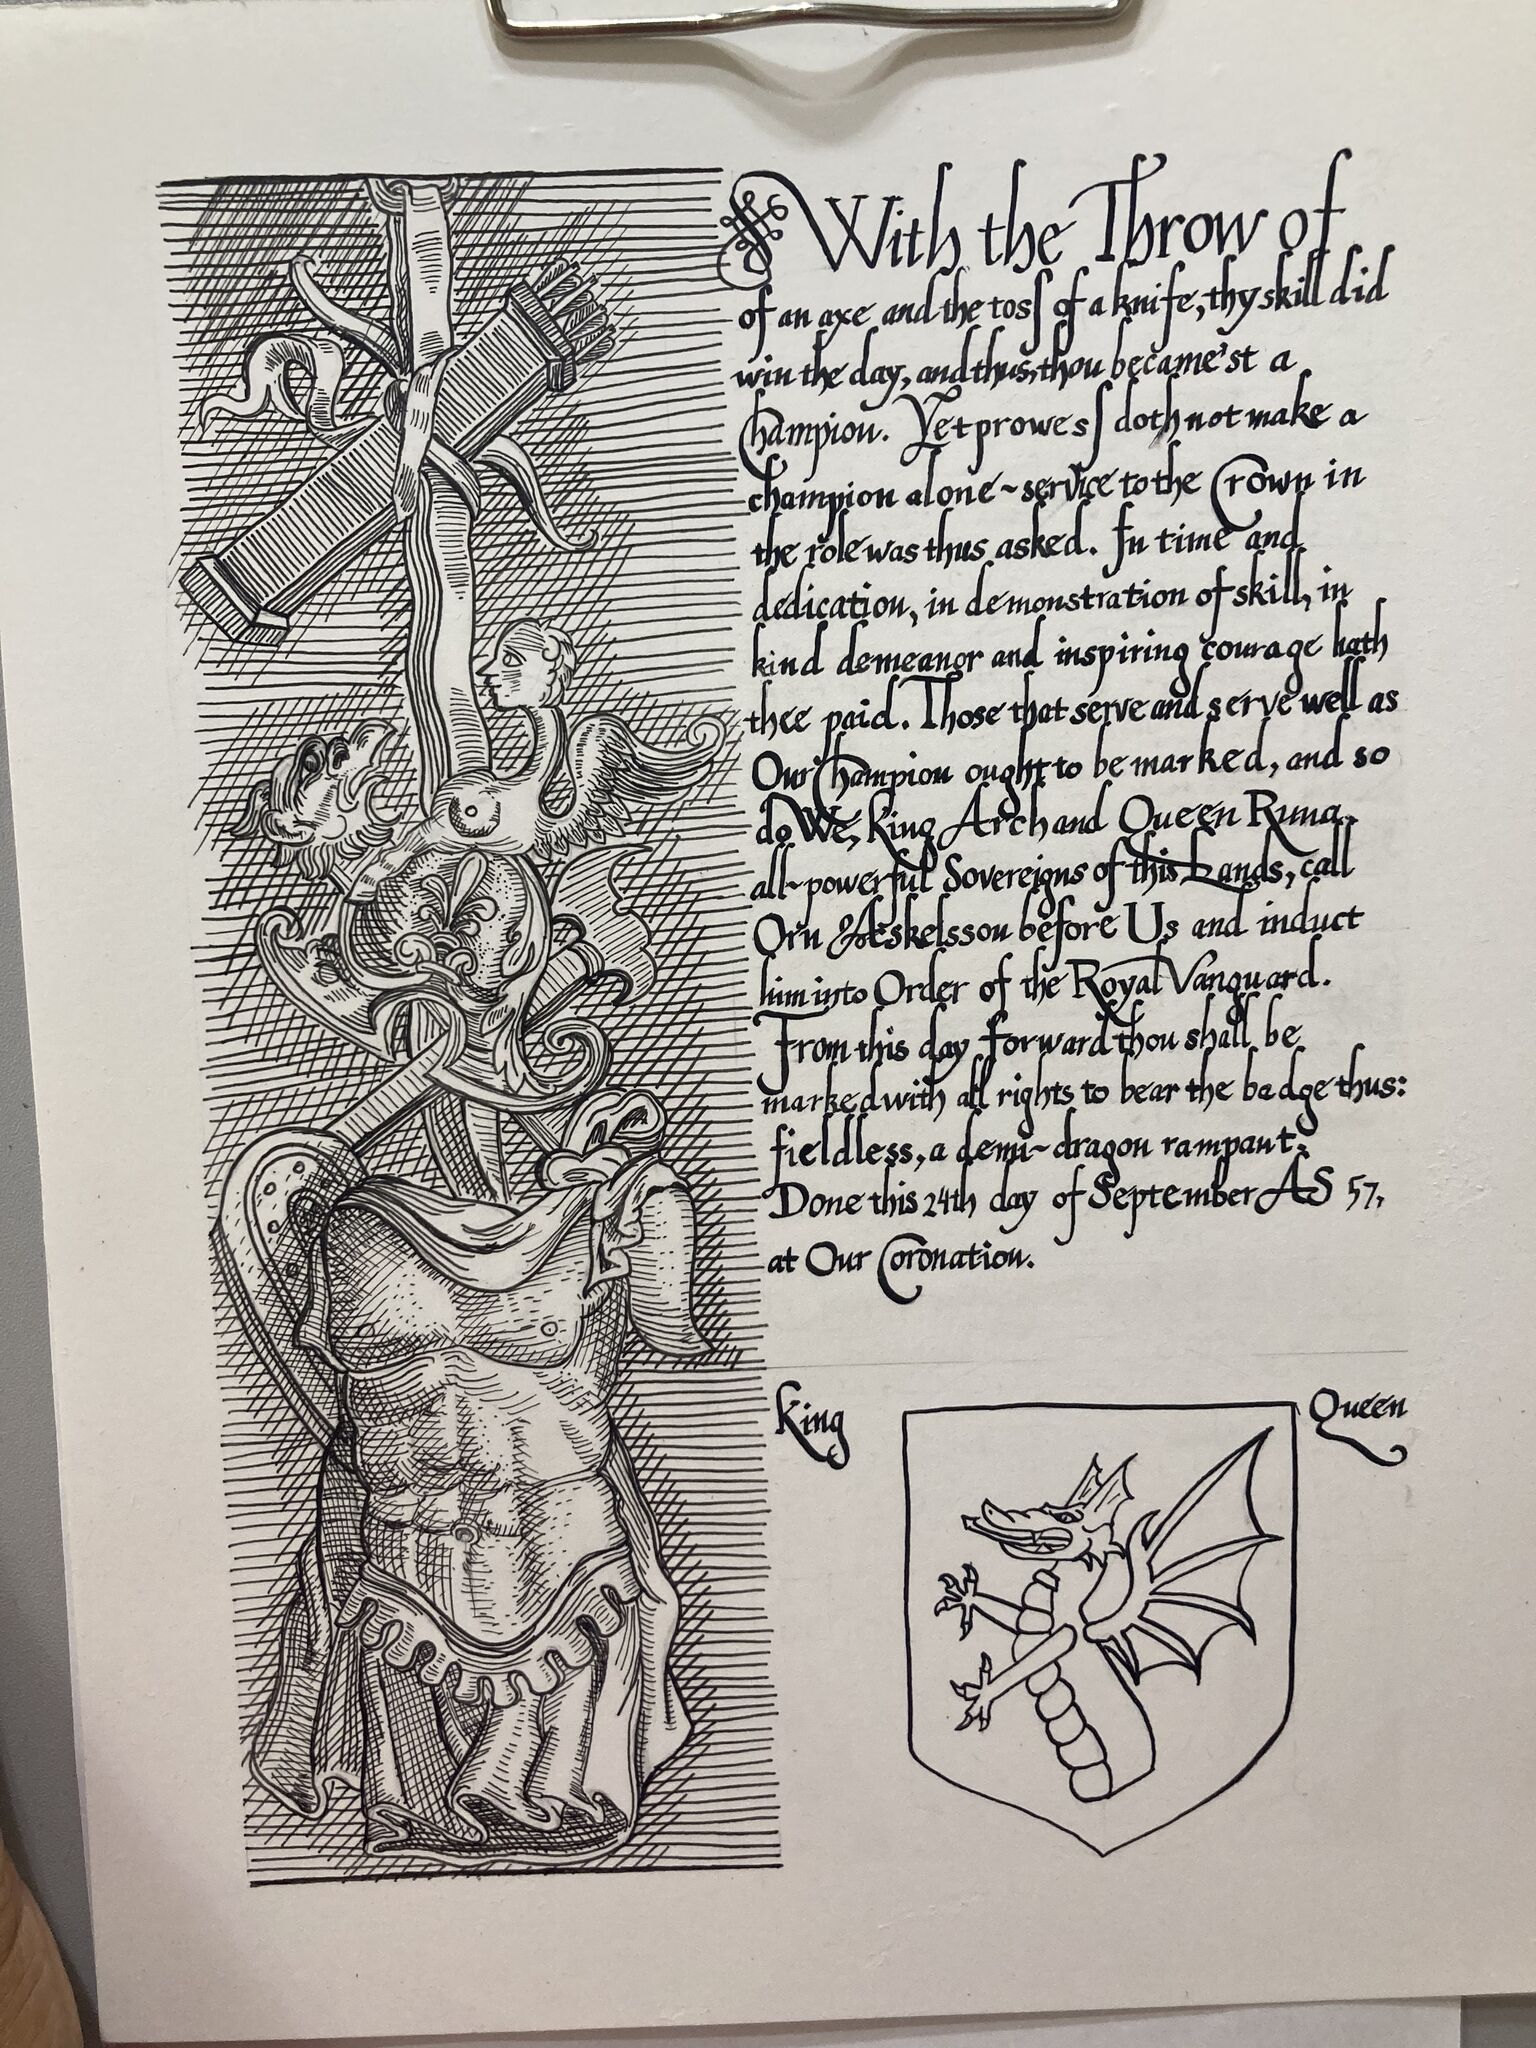 With the Throw of
of an axe and the toss of a knife, thy skill did
win the day, and thus, thou became'st a
Champion. Yet prowess doth not make a
champion alone ~ service to the Crown in
the role was thus asked. In time and
dedication, in demonstration of skill, in
kind demeanor and inspiring courage hath
thee paid. Those that serve and serve well as
Our Champion ought to be marked, and so
do We, King Arch and Queen Runa,
all-powerful Sovereigns of this Lands, call
Orn Æskelsson before Us and induct
him into Order of the Royal Vanguard.
From this day forward thou shall be
marked with all rights to bear the badge thus:
fieldless, a demi-dragon rampant;
Done this 24th day of September AS 57,
at Our Coronation.
King
Queen